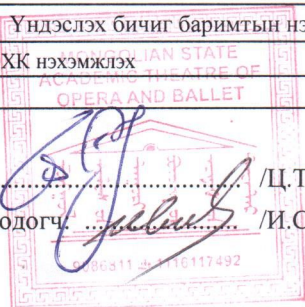 Үндэслэх бичиг баримтын нэ
ХК нэхэмжлэх
MONGOLIAN STATE
ACADEMIC THEATRE OF
OPERA AND BALLET
/Ц.Т
одогч: /И.О
1116117492